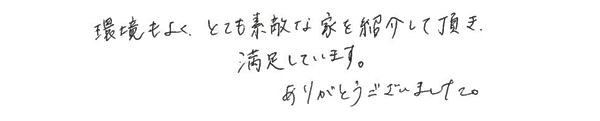 環境もよく、とても素敵な家を紹介して頂き、
満足しています。
ありがとうございました。